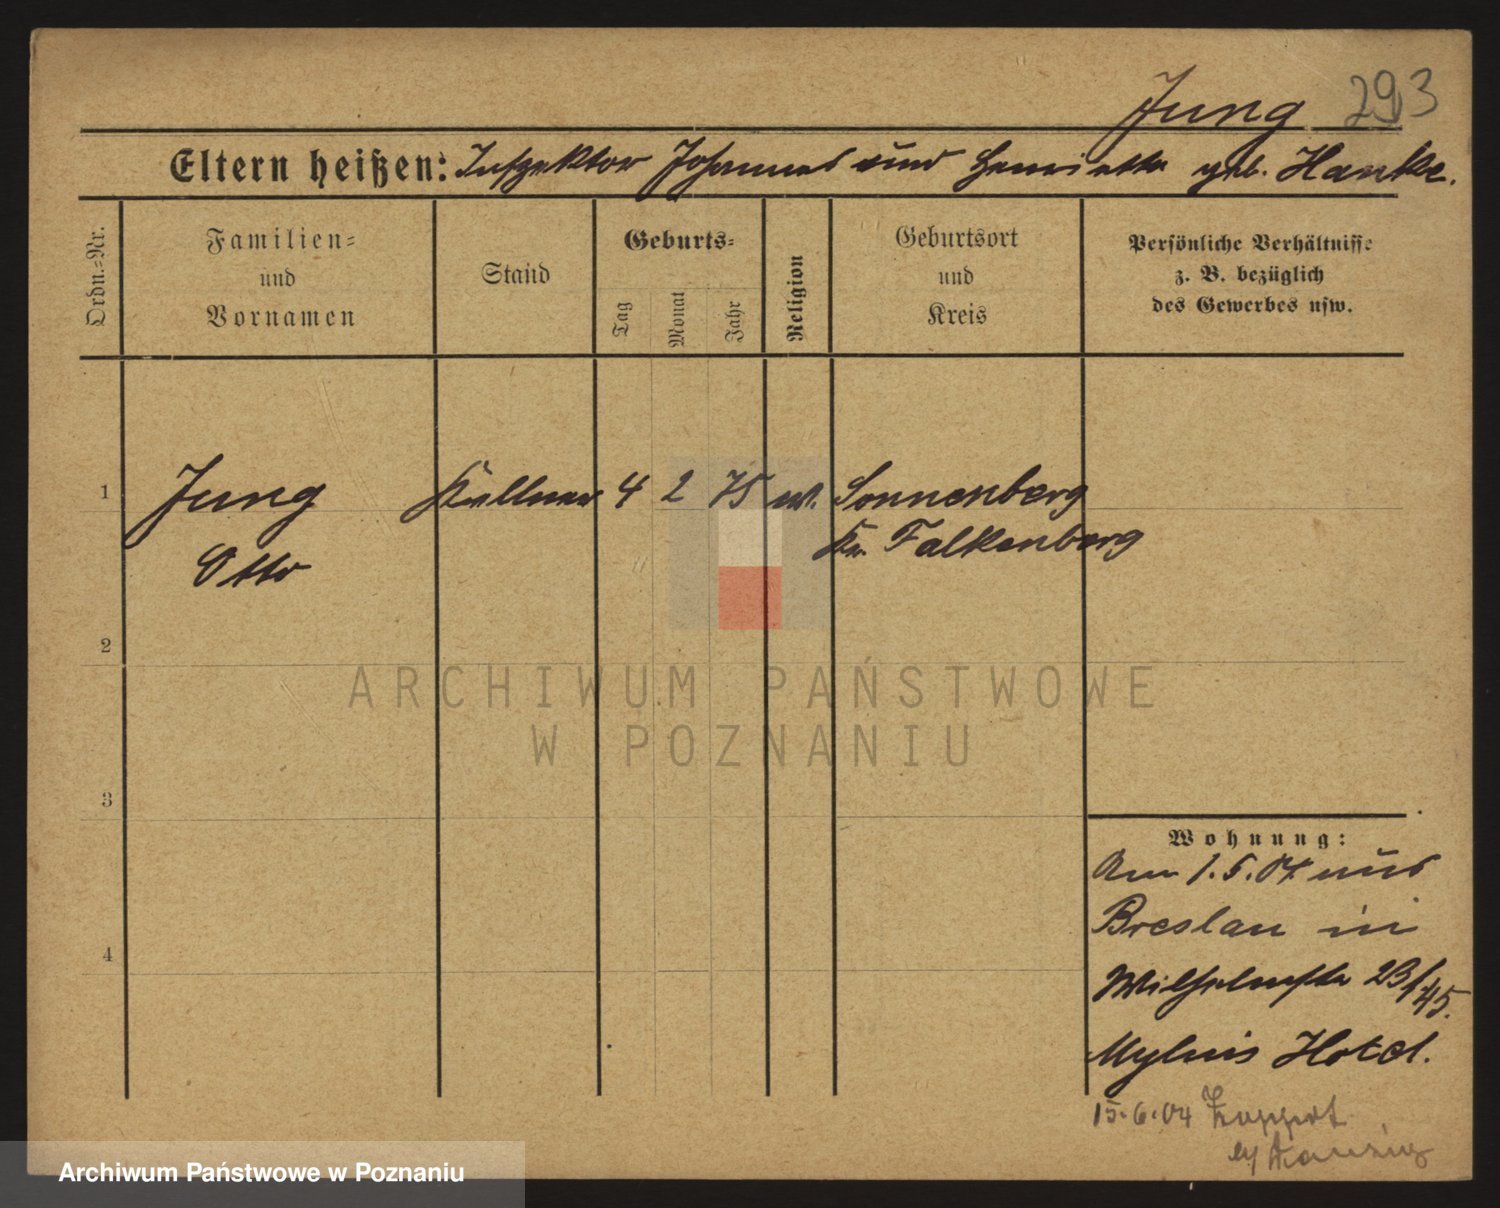 Jung 293
Eltern heißen: Inspektor Johannes und Henriette geb. Hanke.
Ordn.-Nr.
Familien-
und
Vornamen
Stand
Geburts-
Tag
Monat
Jahr
Religion
Geburtsort
und
Kreis
Persönliche Verhältnisse
z. B. bezüglich
des Gewerbes usw.
1 Jung Kellner 4 2 75 ev. Sonnenberg
Otto Kr. Falkenberg
2
3
4
Wohnung:
Am 1.5.04 aus
Breslau in
Wilhelmstr 23/45.
Mylius Hotel.
15.6.04
n/ Danzig
ARCHIWUM PAŃSTWOWE
W POZNANIU
Archiwum Państwowe w Poznaniu